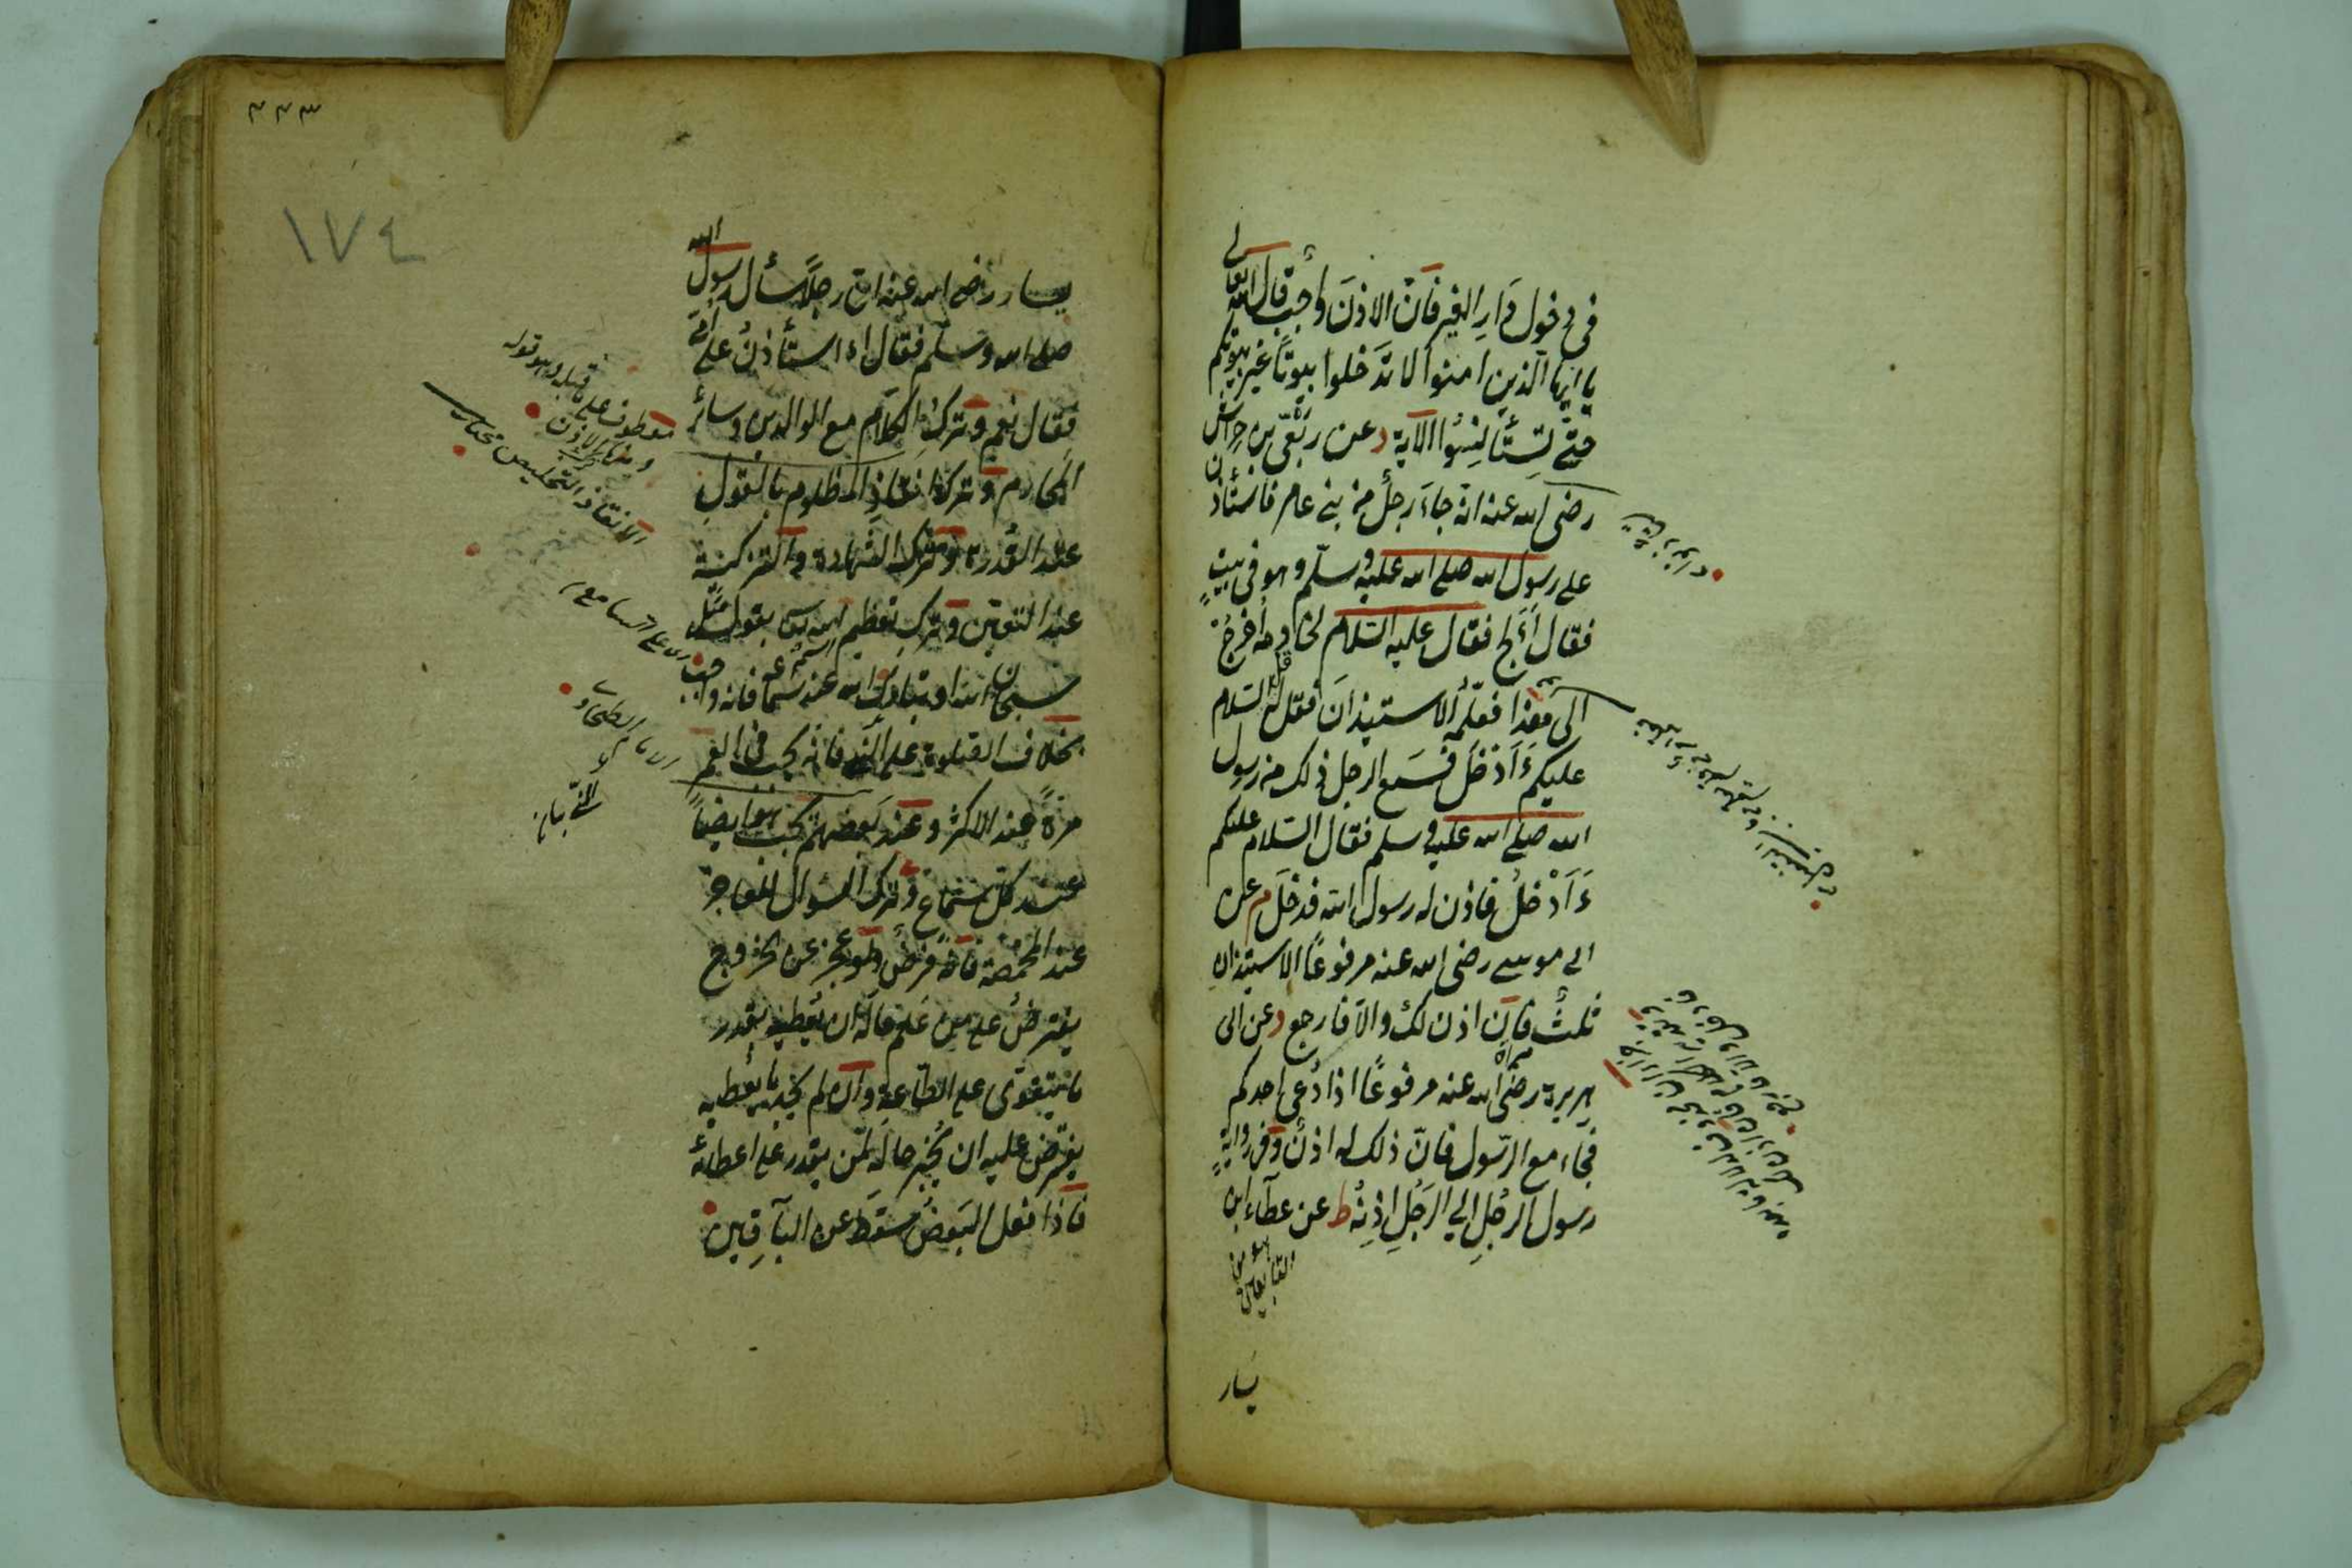 في دخول دَارِ الغير فانّ الاذنَ واجب قال الله تعالى
يا ايها الذين امنوا لا تدخلوا بيوتاً غير بيوتكم
حتّى تستأنسُوا الآية د عن ربعّي بن حراش
رضى الله عنه انه جاءَ رجلٌ من بنى عامر فاستأذن
على رسول الله صلى الله عليه وسلّم وهو فى بيتٍ
فقال أَلج فقال عليه السّلام لخادمه أخرجُ
الى هذا فعلّمه الاستيذانَ فقل له قل السّلام
عليكم ءَاَدْخل فسمع الرجل ذلك من رسول
الله صلى الله عليه وسلم فقال السّلام عليكم
ءَاَدْخلُ فاذن له رسول الله فدخلَ م عن
ابى موسى رضى الله عنه مرفوعًا الاستيذان
ثلثٌ فان اذن لك والاّ فارجع د عن ابى
هريرة رضى الله عنه مرفوعًا اذا دُعى احدكم
فجاء مع الرّسول فانّ ذلك له اذنٌ وفى روايةٍ
رسول الرجُلِ الى الرّجُلِ اذنُه ط عن عطآء ابن
هو من
التابعين
يسار
٣٤٣
١٧٤
يسار رضى الله عنه انّ رجلاً سأل رسول الله
صلى الله وسلّم فقال ءاستأذنُ على اُمّى
فقال نعم وتركُ الكلام مع الوالدين وسائر
المحارم وتركُ انقاذِ المظلوم بالقولِ
عند القُدرة وترك الشهادة والتزكية
عند التعيّن وترك تعظيم اسم الله بقول مثل
سبحان الله او تبارك الله عند سماعه فانه واجب
بخلاف الصّلوة على النبى فانّه يجب فى العمر
مرّةً عند الاكثر وعند بعضهم يجب هو ايضاً
عند كلّ سماع وترك السّوال للعاجز
عند المخمصة فانّه فرضٌ ولو عجز عن الخروج
يفترضُ على من عَلم حاله ان يُعطيه بقدر
ما يتقوّى على الطّاعة وان لم يجد ما يُعطيه
يفترض عليه ان يُخبر حاله لمن يقدر على اعطائه
فاذا فعل البَعضُ سقط عن البآقين
معطوف على ما قبله وهو قوله
وترك الاذن
الانقاذ التخليص مختار
اى على السامع
الامام الطحاوى